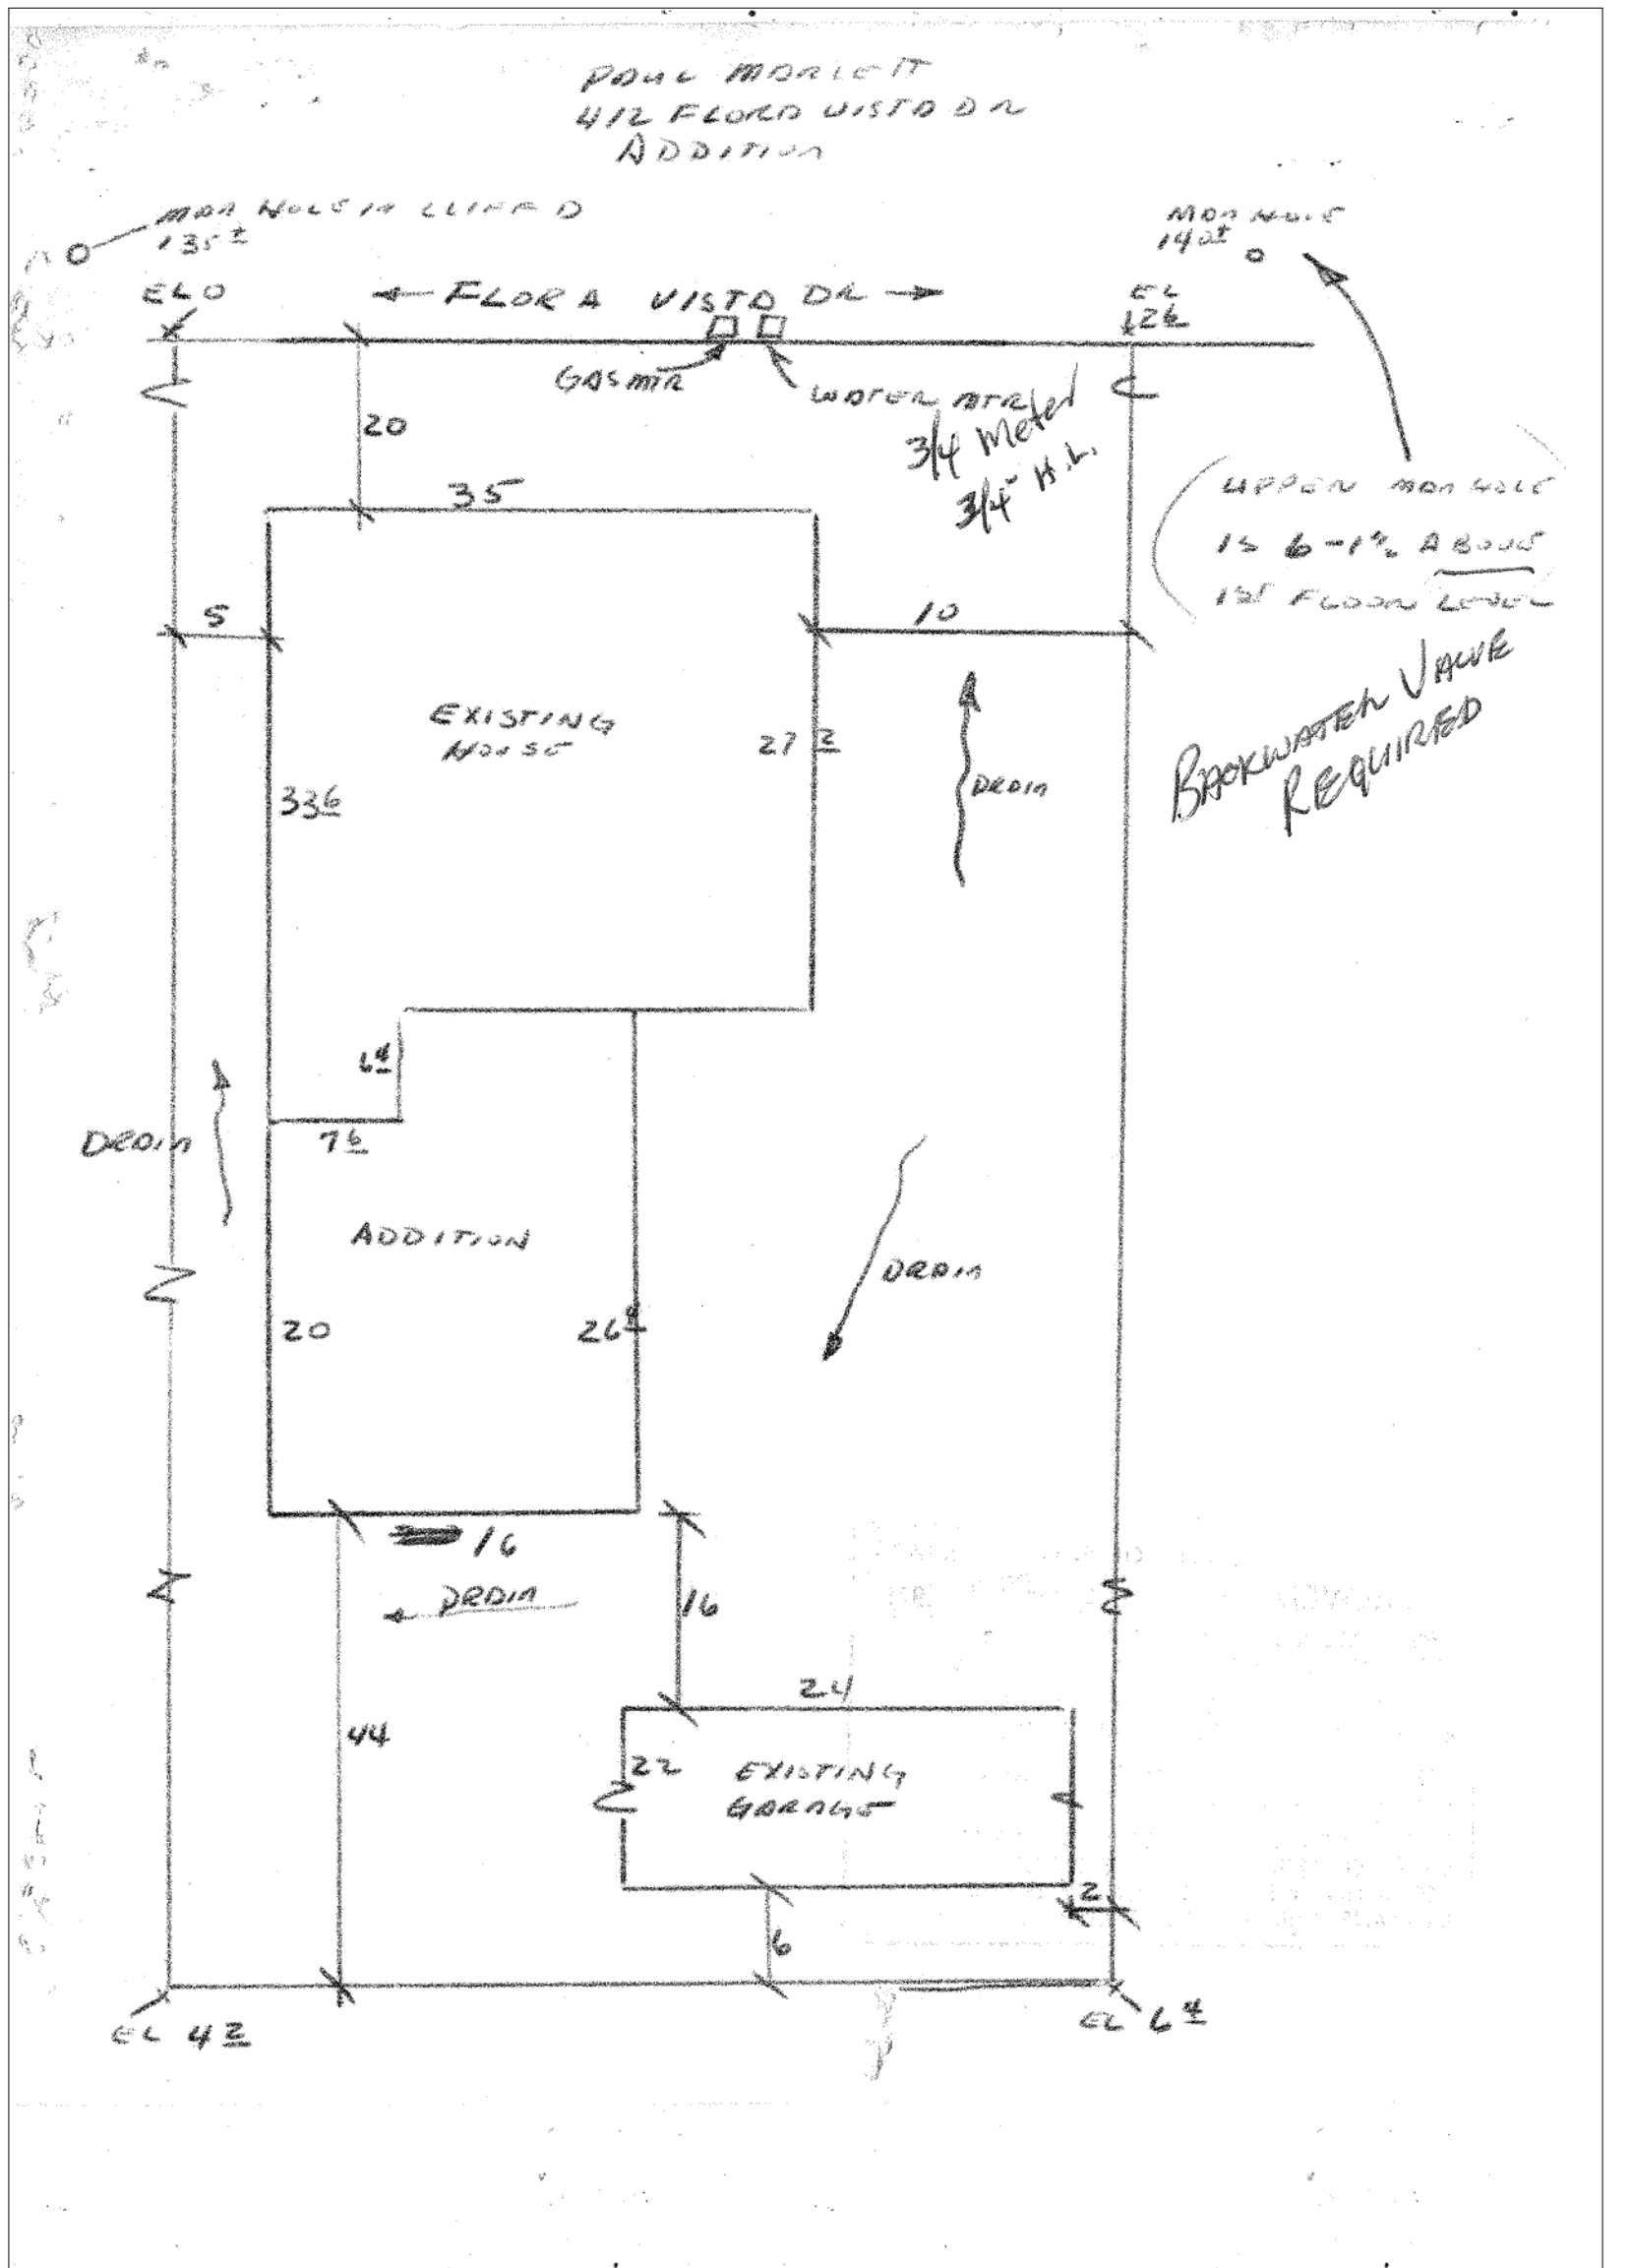 PAUL MARLETT
412 FLORA VISTA DR
ADDITION
MAN HOLE IN CLIFF D
135±
MAN HOLE
140±
EL 0
← FLORA VISTA DR →
EL
26
GAS MTR
WATER MTR
3/4 Meter
3/4" H.L.
20
35
UPPER MAN HOLE
IS 6-1½ ABOVE
1ST FLOOR LEVEL
5
10
BACKWATER VALVE
REQUIRED
EXISTING
HOUSE
27 2
DRAIN
33 6
6 4
7 6
DRAIN
ADDITION
DRAIN
20
26 4
16
DRAIN
16
24
44
22
EXISTING
GARAGE
2
6
EL 4 2
EL 6 4